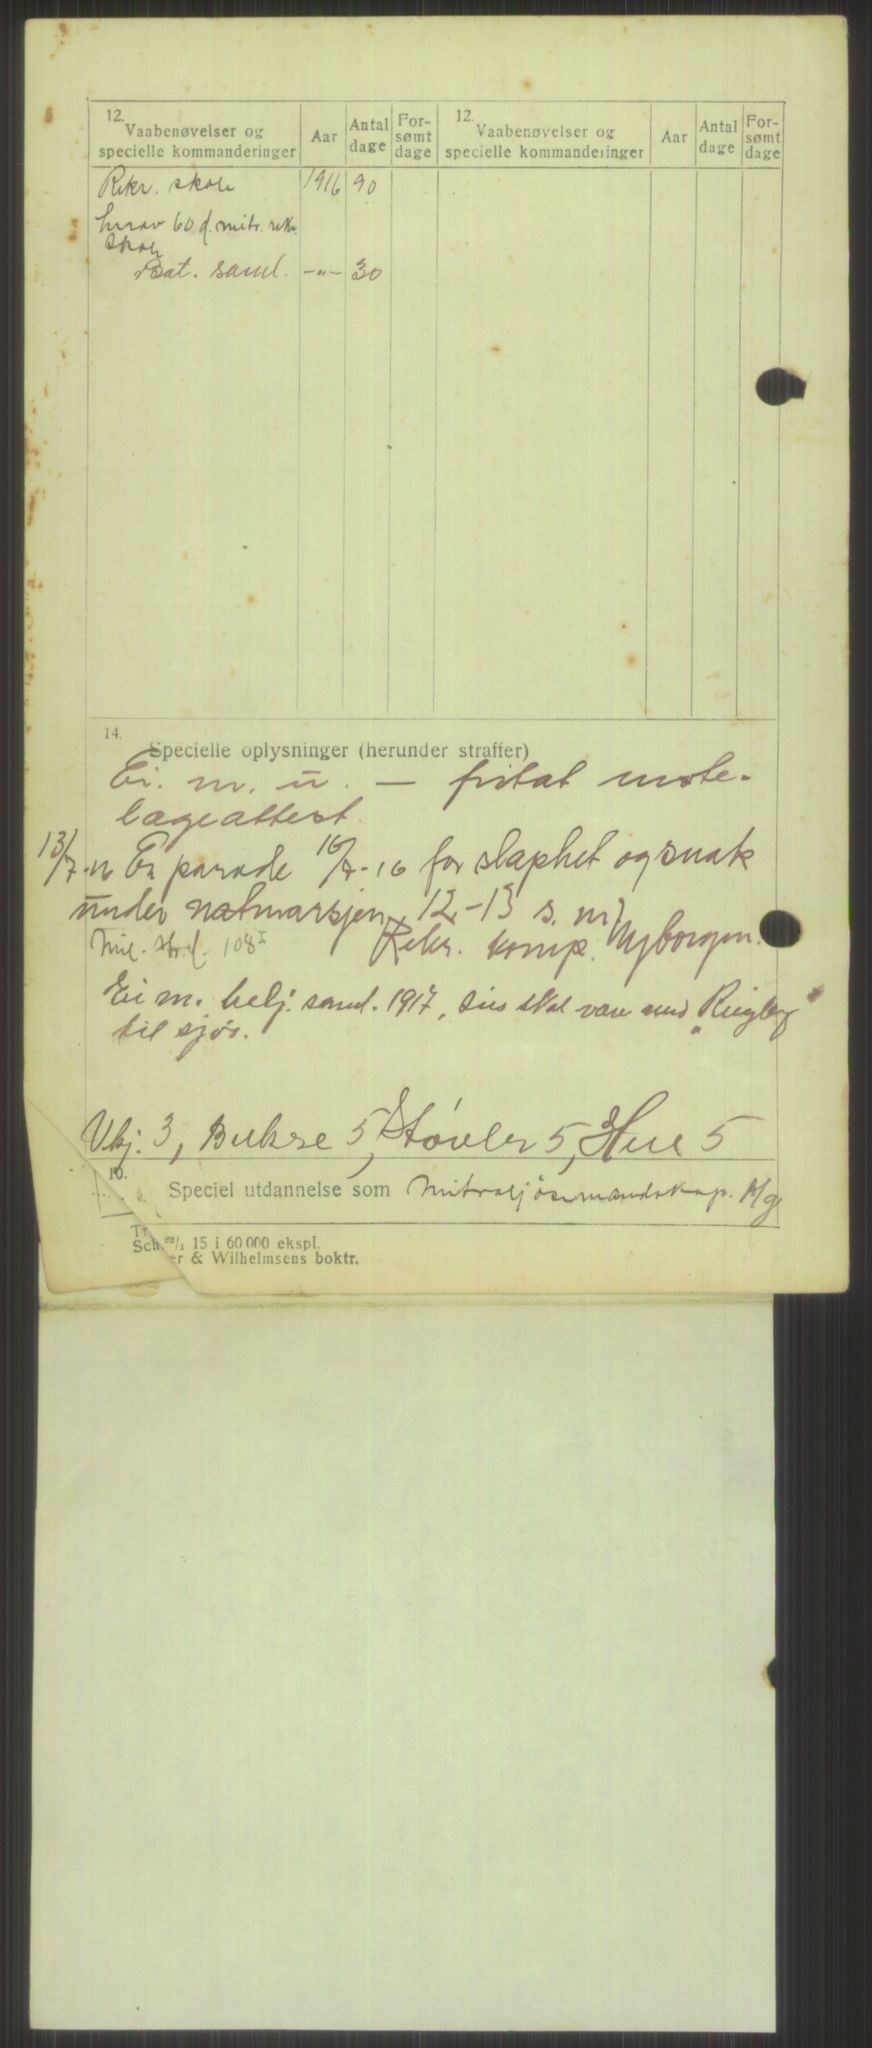 12. Vaabenøvelser og specielle kommanderinger Aar Antal dage For-sømt dage 12. Vaabenøvelser og specielle kommanderinger Aar Antal dage For-sømt dage
Rekr. skole 1916 90
herav 60 d. mitr. rekr.
skole
Bat. saml. -"- 30
14. Specielle oplysninger (herunder straffer)
Ei. m. u. — fritat møte.
lægeattest.
13/7-16 En parade 16/7-16 for slaphet og snak
under natmarsjen 12-13 s. m.
Mil. str. l. 108 I Rekr. komp. Nyborgen.
Ei m. belj. saml. 1917, sies skal være med "Ringborg"
til sjøs.
Vkj. 3, Bukse 5, Støvler 5, Hue 5
10. Speciel utdannelse som Mitraljøsemandskap. H/g
Sch. 22/1 15 i 60 000 ekspl.
er & Wilhelmsens boktr.